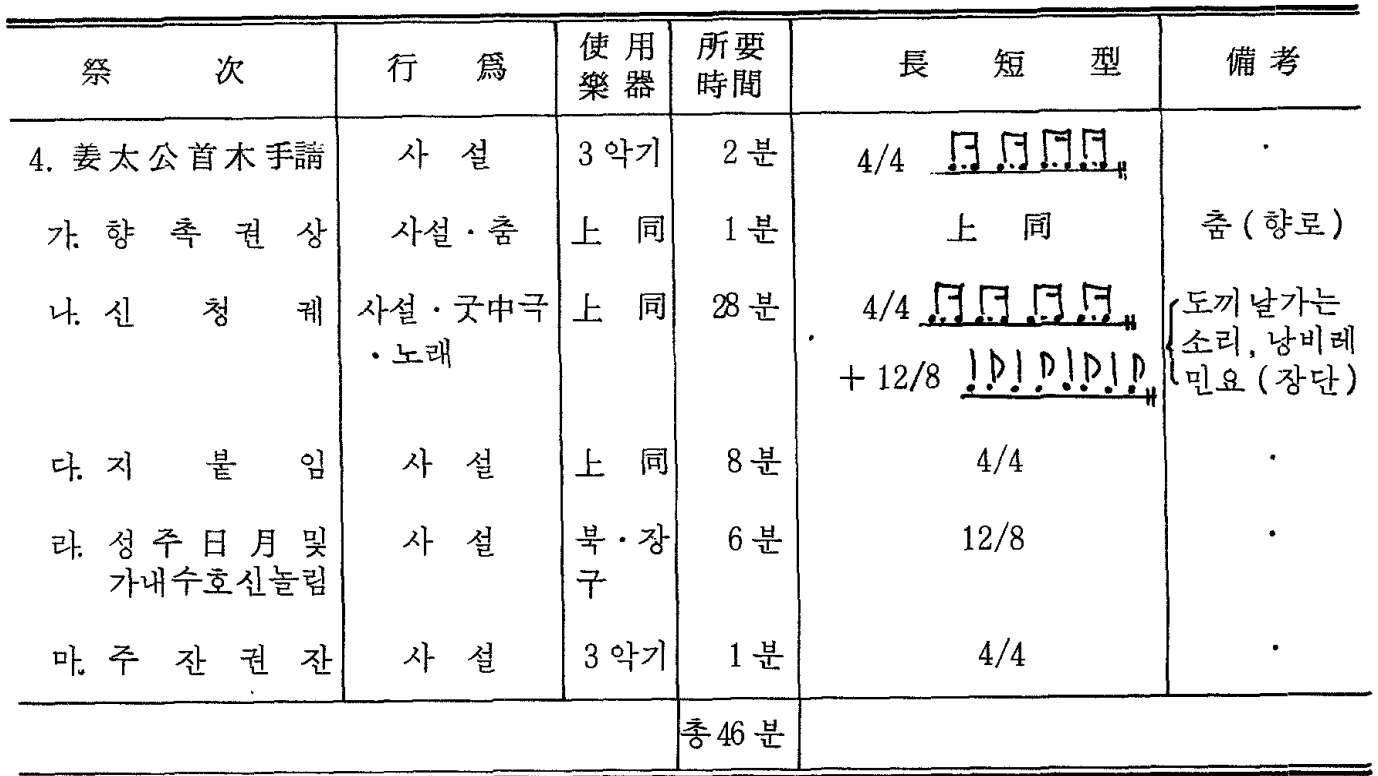 祭次 行爲 使用樂器 所要時間 長短型 備考
4. 姜太公首木手請 사설 3악기 2분 4/4 ·
가. 향촉권상 사설·춤 上同 1분 上同 춤(향로)
나. 신청궤 사설·굿中극·노래 上同 28분 4/4 + 12/8 도끼날가는 소리, 낭비레 민요(장단)
다. 지붙임 사설 上同 8분 4/4 ·
라. 성주日月 및 가내수호신놀림 사설 북·장구 6분 12/8 ·
마. 주잔권잔 사설 3악기 1분 4/4 ·
총46분